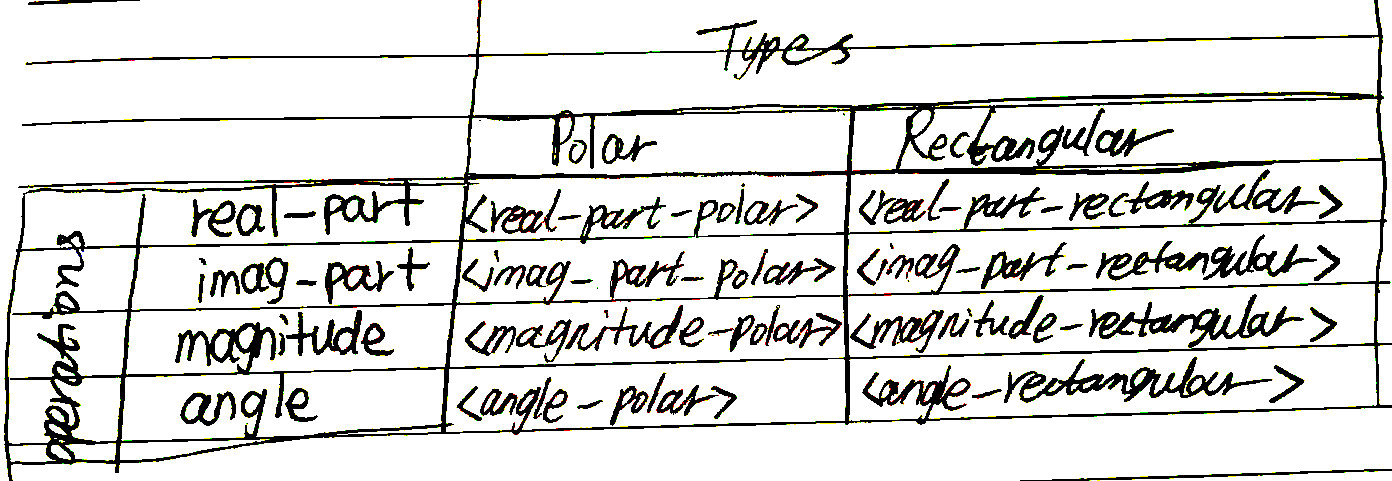 Types
Polar Rectangular
real-part <real-part-polar> <real-part-rectangular>
imag-part <imag-part-polar> <imag-part-rectangular>
magnitude <magnitude-polar> <magnitude-rectangular>
angle <angle-polar> <angle-rectangular>